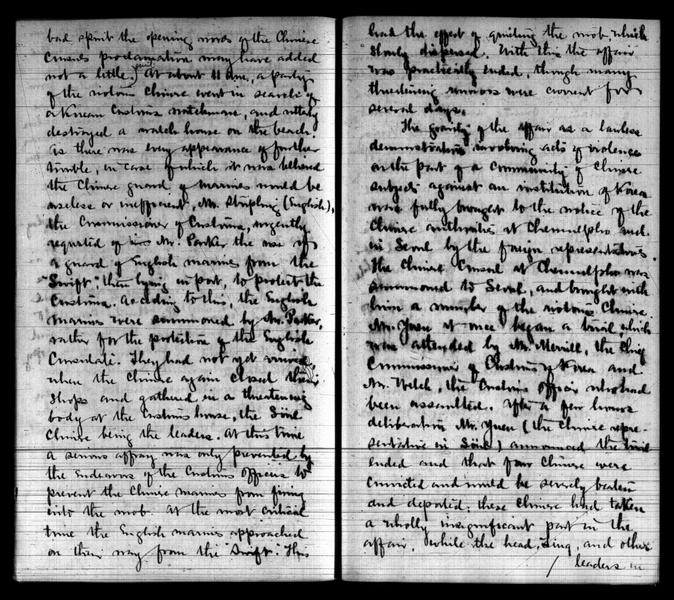 had spirit the opening words of the Chinese
Consuls proclamation may have added
not a little, At about 11 a.m., a party
of the riotous Chinese went in search of
a Korean Customs watchman, and utterly
destroyed a watch house on the beach.
As there was every appearance of further
trouble, in case of which it was believed
the Chinese guard of Marines would be
useless or inefficient, Mr. Stripling (English),
the Commissioner of Customs, urgently
requested of Mr. Parker the use of
a guard of English marines from the
"Swift" then lying in port, to protect the
Customs. According to this, the English
marines were summoned by Mr. Parker,
rather for the protection of the English
Consulate. They had not yet arrived
when the Chinese again closed their
shops and gathered in a threatening
body at the Customs house, the Söul
Chinese being the leaders. At this time
a serious affray was only prevented by
the Endeavors of the Customs officers to
prevent the Chinese marines from firing
into the mob. At the most critical
time the English marines approached
on their way from the "Swift". This
had the effect of quieting the mob which
slowly dispersed. With this the affair
was practically ended, though many
threatening rumors were current for
several days.
The gravity of the affair as a lawless
demonstration involving acts of violence
on the part of a community of Chinese
subjects against an institution of Korea
were fully brought to the notice of the
Chinese authorities at Chemulpho and
in Seoul by the foreign representatives.
The Chinese Consul at Chemulpho was
summoned to Seoul, and brought with
him a number of the riotous Chinese.
Mr. Yuen at once began a trial which
was attended by Mr. Merrill, the Chief
Commissioner of Customs of Korea and
Mr. Welch, the Customs officer who had
been assaulted. After a few hours
deliberation Mr. Yuen (the Chinese repre-
sentative in Söul) announced the trial
ended and that four Chinese were
convicted and would be severely beaten
and deported; these Chinese had taken
a wholly insignificant part in the
affair, while the head, and other
leaders in